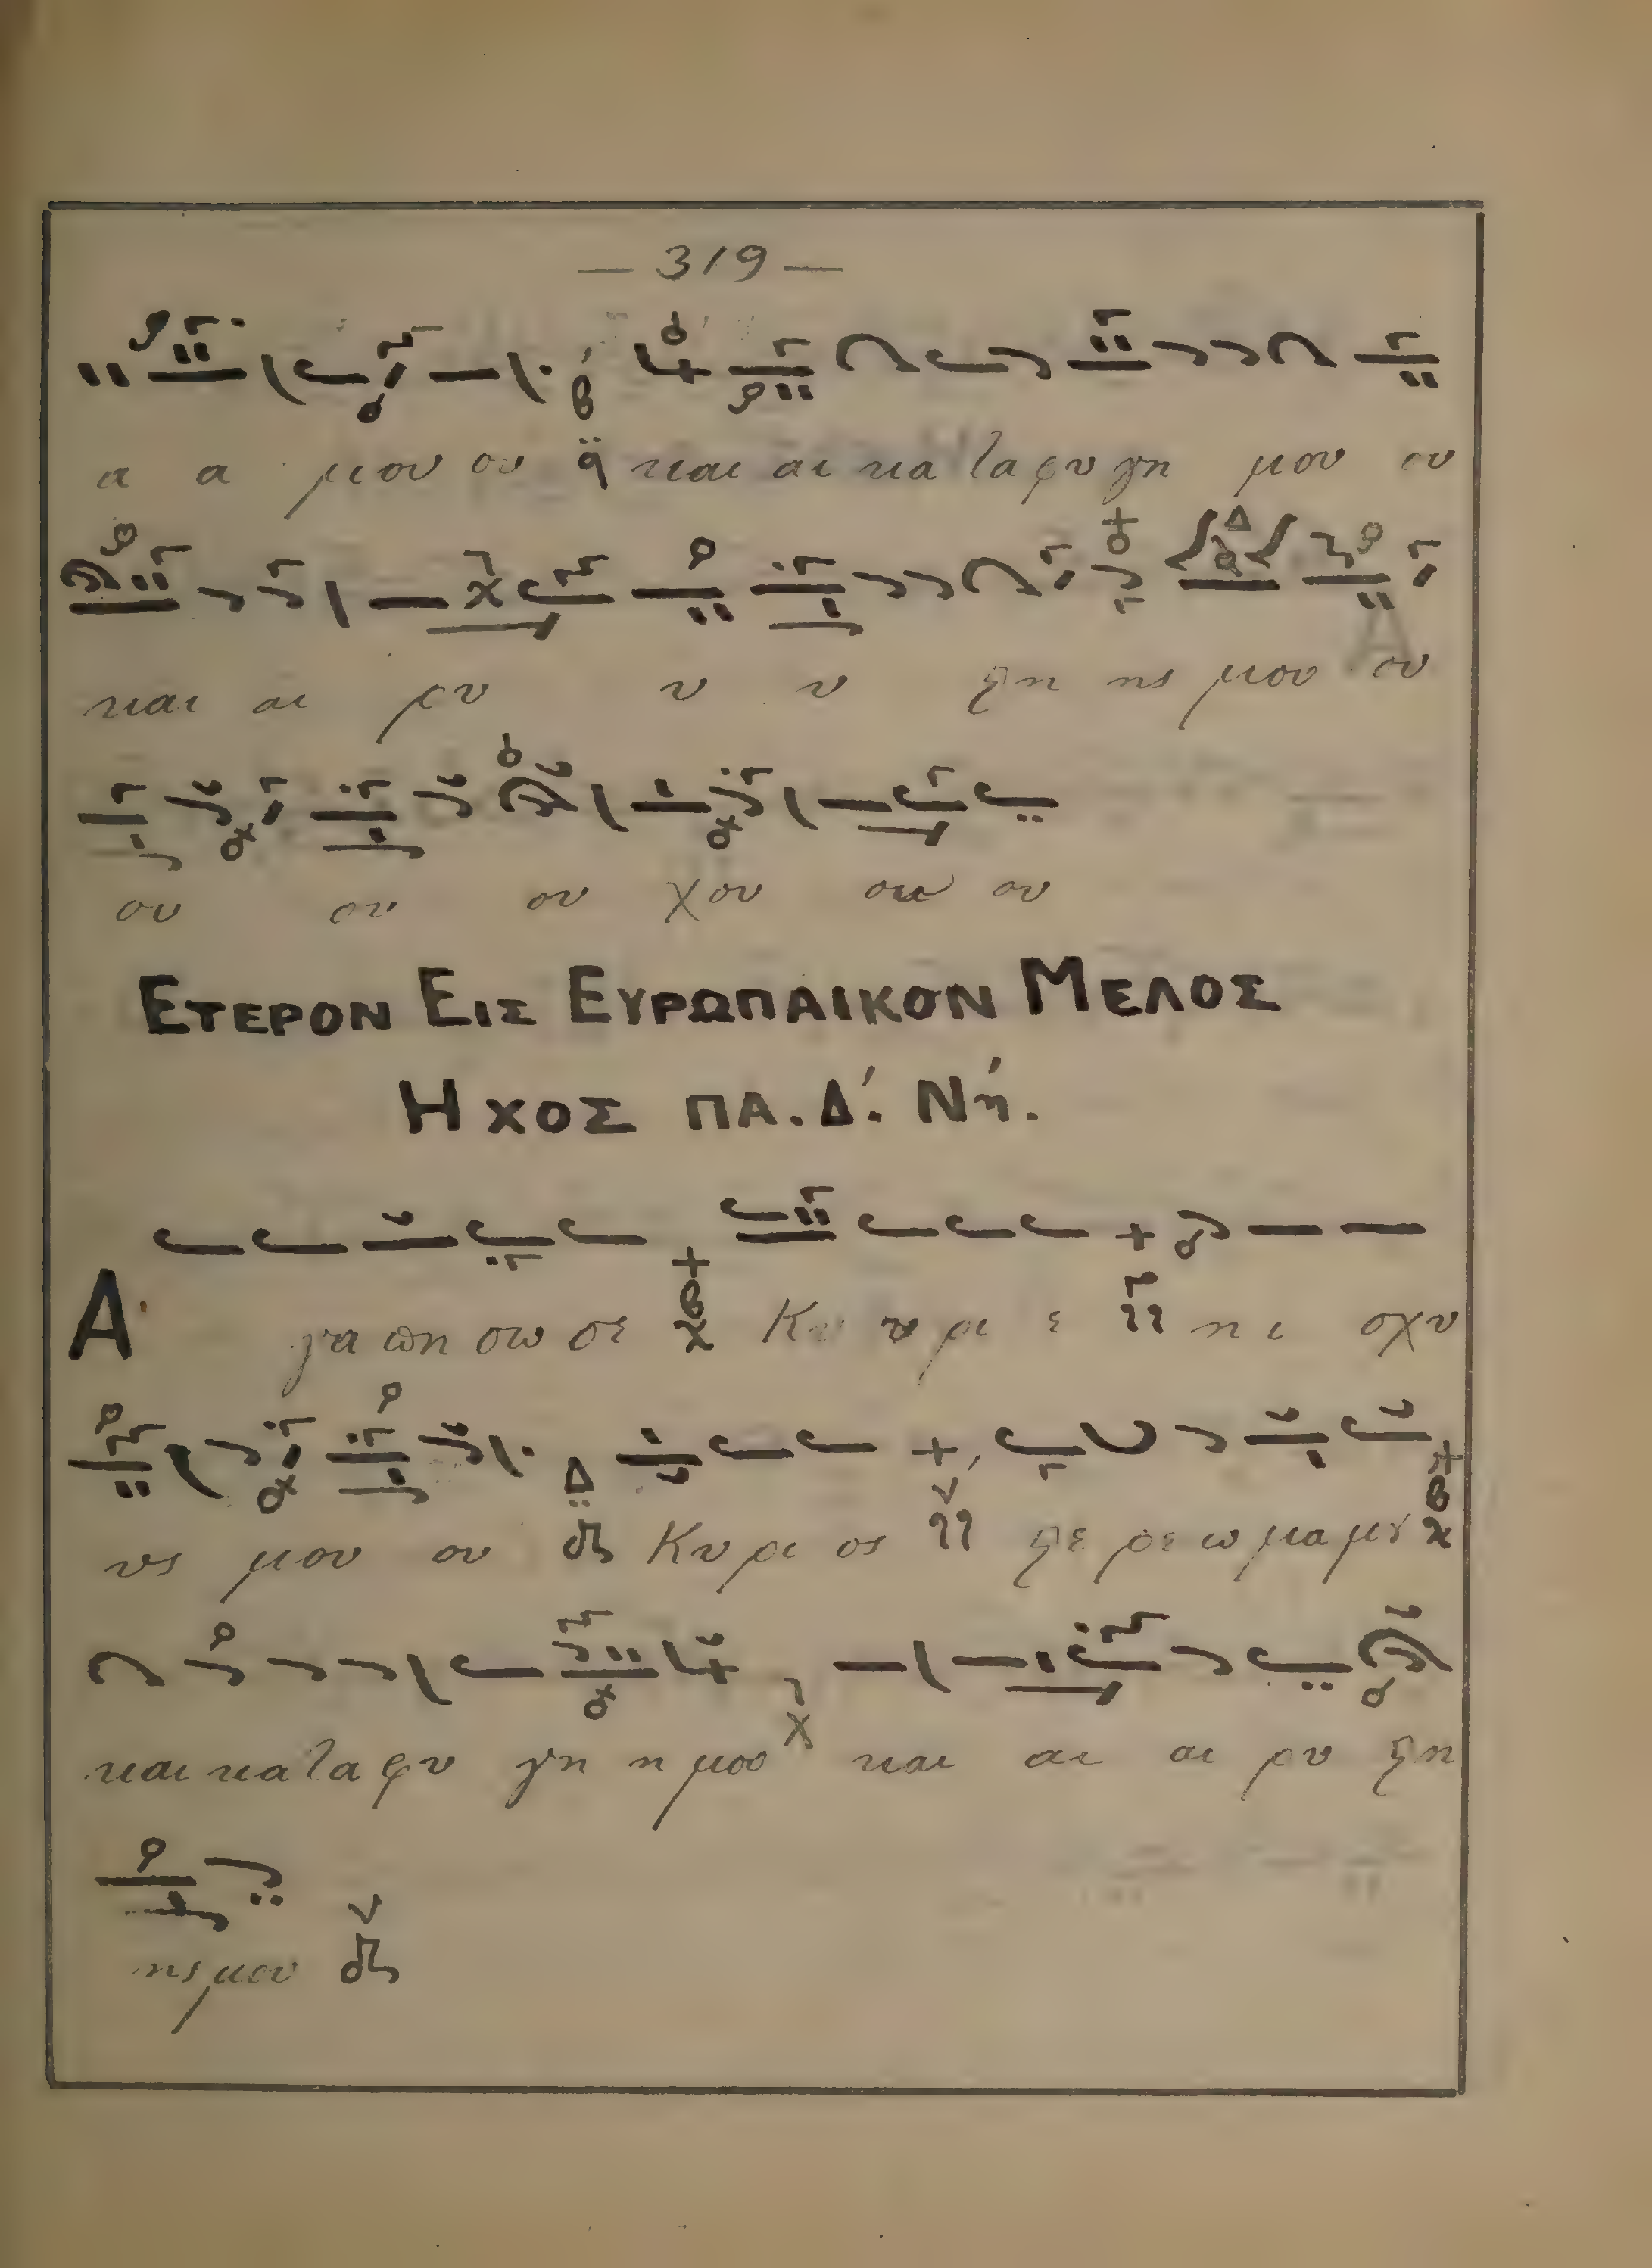 — 319 —
α α μου ου και αι κα τα φυ γη μου ου
και αι ρυ υ υ ςη ης μου ου
ου ου ου χου ου
ΕΤΕΡΟΝ ΕΙΣ ΕΥΡΩΠΑΙΚΟΝ ΜΕΛΟΣ
ΗΧΟΣ ΠΛ. Δ΄. Νή.
Α γα πη σω σε Κυ υ ρι ε η ι σχυ
υς μου ου Κυ ρι ος ςε ρε ω μα μȣ
και κα τα φυ γη η μου και αι αι ρυ ςη
ης μου